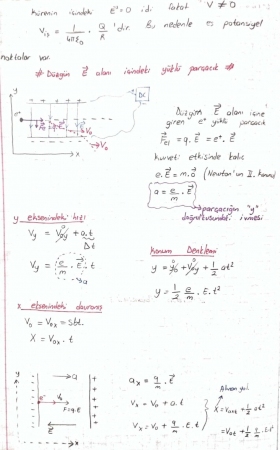 kürenin içindeki E=0 idi fakat V≠0
V_iç = 1/4πε₀ . Q/R 'dir. Bu nedenle eş potansiyel
noktalar var.
# Düzgün E alanı içindeki yüklü parçacık #
y
+ + + +
DC
e⁺
V₀
- - - -
x
Düzgün E alanı içine
giren e⁺ yüklü parçacık
F_el = q.E = e⁺.E
kuvveti etkisinde kalır
e.E = m.a (Newton'un II. kanunu)
a = e/m . E
parçacığın "y"
doğrultusundaki ivmesi
y eksenindeki hızı
V_y = V₀y + a.t
Δt
V_y = e/m . E . t
a
Konum Denklemi
y = y₀ + V₀y + 1/2 at²
y = 1/2 e/m . E.t²
x eksenindeki davranış
V₀ = V₀x = sbt.
X = V₀x . t
y
a
V₀
F=q.E
E
x
a_x = q/m . E
V_x = V₀ + a.t
V_x = V₀ + q/m . E.t
Alınan yol
X = V₀xt + 1/2 at²
= V₀xt + 1/2 q/m